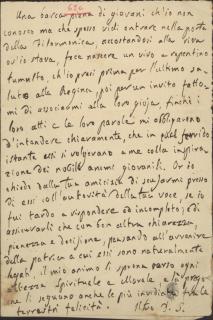 Una barca piena di giovani ch'io non
conosco ma che spesso vidi entrare nella porta
della Filarmonica, accostandosi alla riva
ov'io stava, fece nascere un vivo e repentino
tumulto, ch'io presi prima per l'ultimo sa-
luto alla Regina, poi per un invito fatto-
mi di associarmi alla loro gioja, finché i
loro atti e le loro parole mi obbligarono
d'intendere chiaramente, che in quel fervido
istante essi si volgevano a me colla inspira-
zione dei nobili animi giovanili. Or io
chiedo dalla tua amicizia di scusarmi presso
di essi coll'autorità della tua voce se io
fui tardo a rispondere ed incompto, ed
assicurarli che con ben altra chiarezza,
pienezza e decisione, pensando all'avvenire
della patria a cui essi sono naturalmente
legati, il mio animo li sprona verso ogni
altezza spirituale e morale
ne li seguano anche le più invidiate fra le
terrestri felicità.